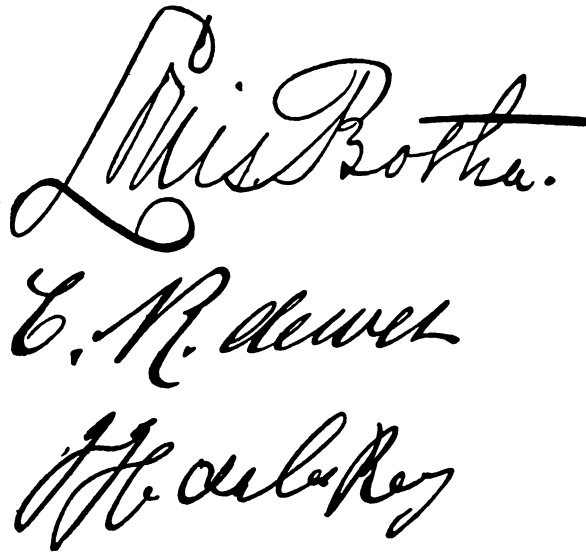 Louis Botha.
C. R. de Wet
J H de la Rey